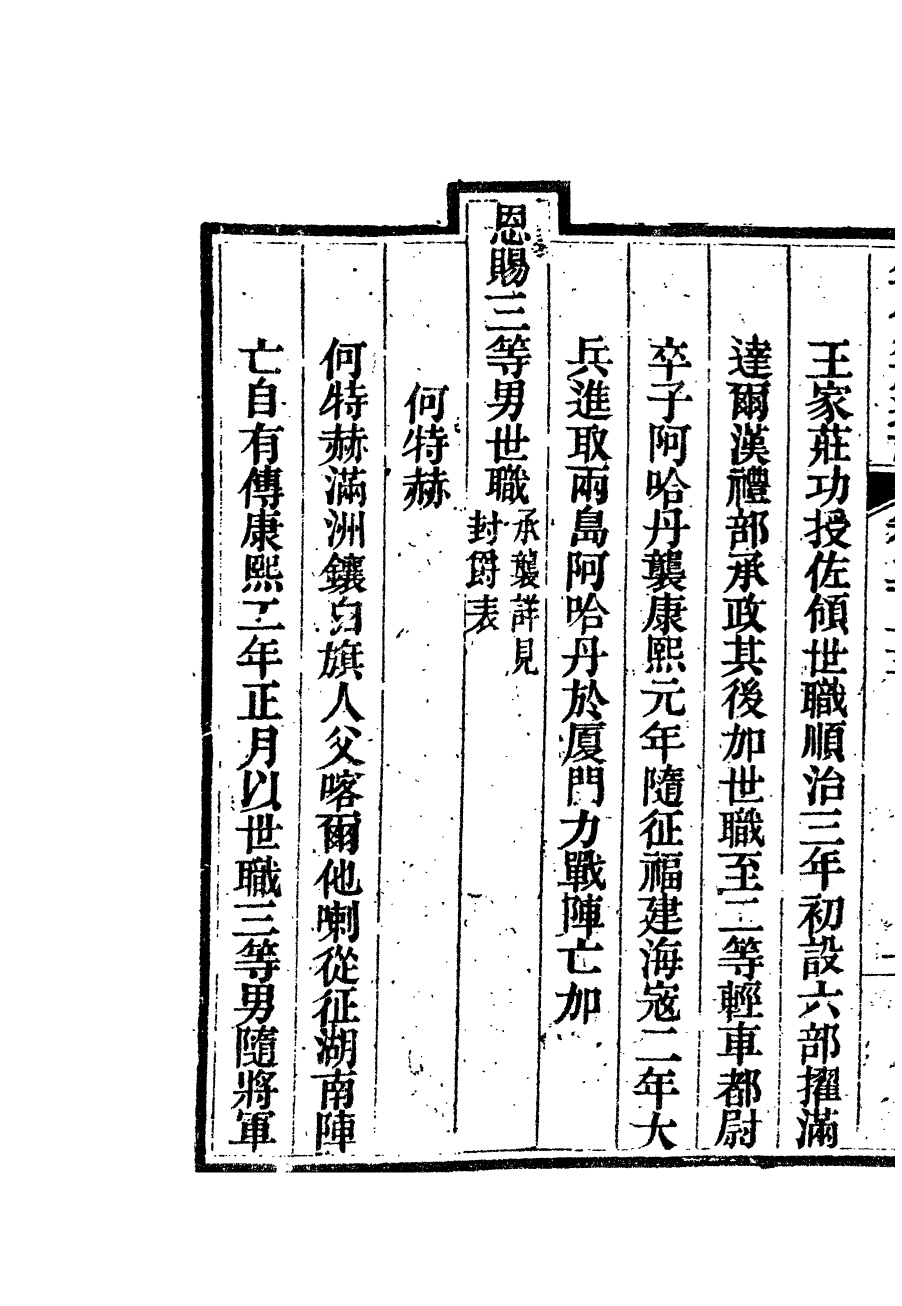 王家莊功授佐領世職順治三年初設六部擢滿
達爾漢禮部承政其後加世職至二等輕車都尉
卒子阿哈丹襲康熙元年隨征福建海寇二年大
兵進取兩島阿哈丹於厦門力戰陣亡加
恩賜三等男世職承襲詳見
封爵表
何特赫
何特赫滿洲鑲白旗人父喀爾他喇從征湖南陣
亡自有傳康熙二年正月以世職三等男隨將軍